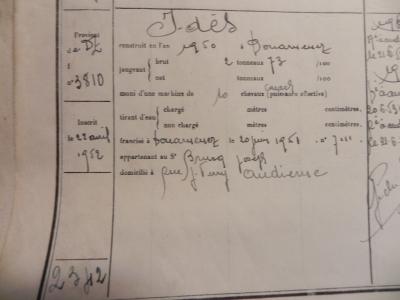 J-dès
Provient
de DZ
f
n° 3810
Inscrit
le 22 avril
1952
2342
construit en l'an 1950 à Douarnenez
jaugeant
brut 2 tonneaux 73 /100
net tonneaux /100
muni d'une machine de 10 chevaux (puissance effective)
tirant d'eau
chargé mètres centimètres.
non chargé mètres centimètres.
francisé à Douarnenez le 20 juin 1951 n°
appartenant au Sr Joseph
domicilié à rue J. Ferry Audierne